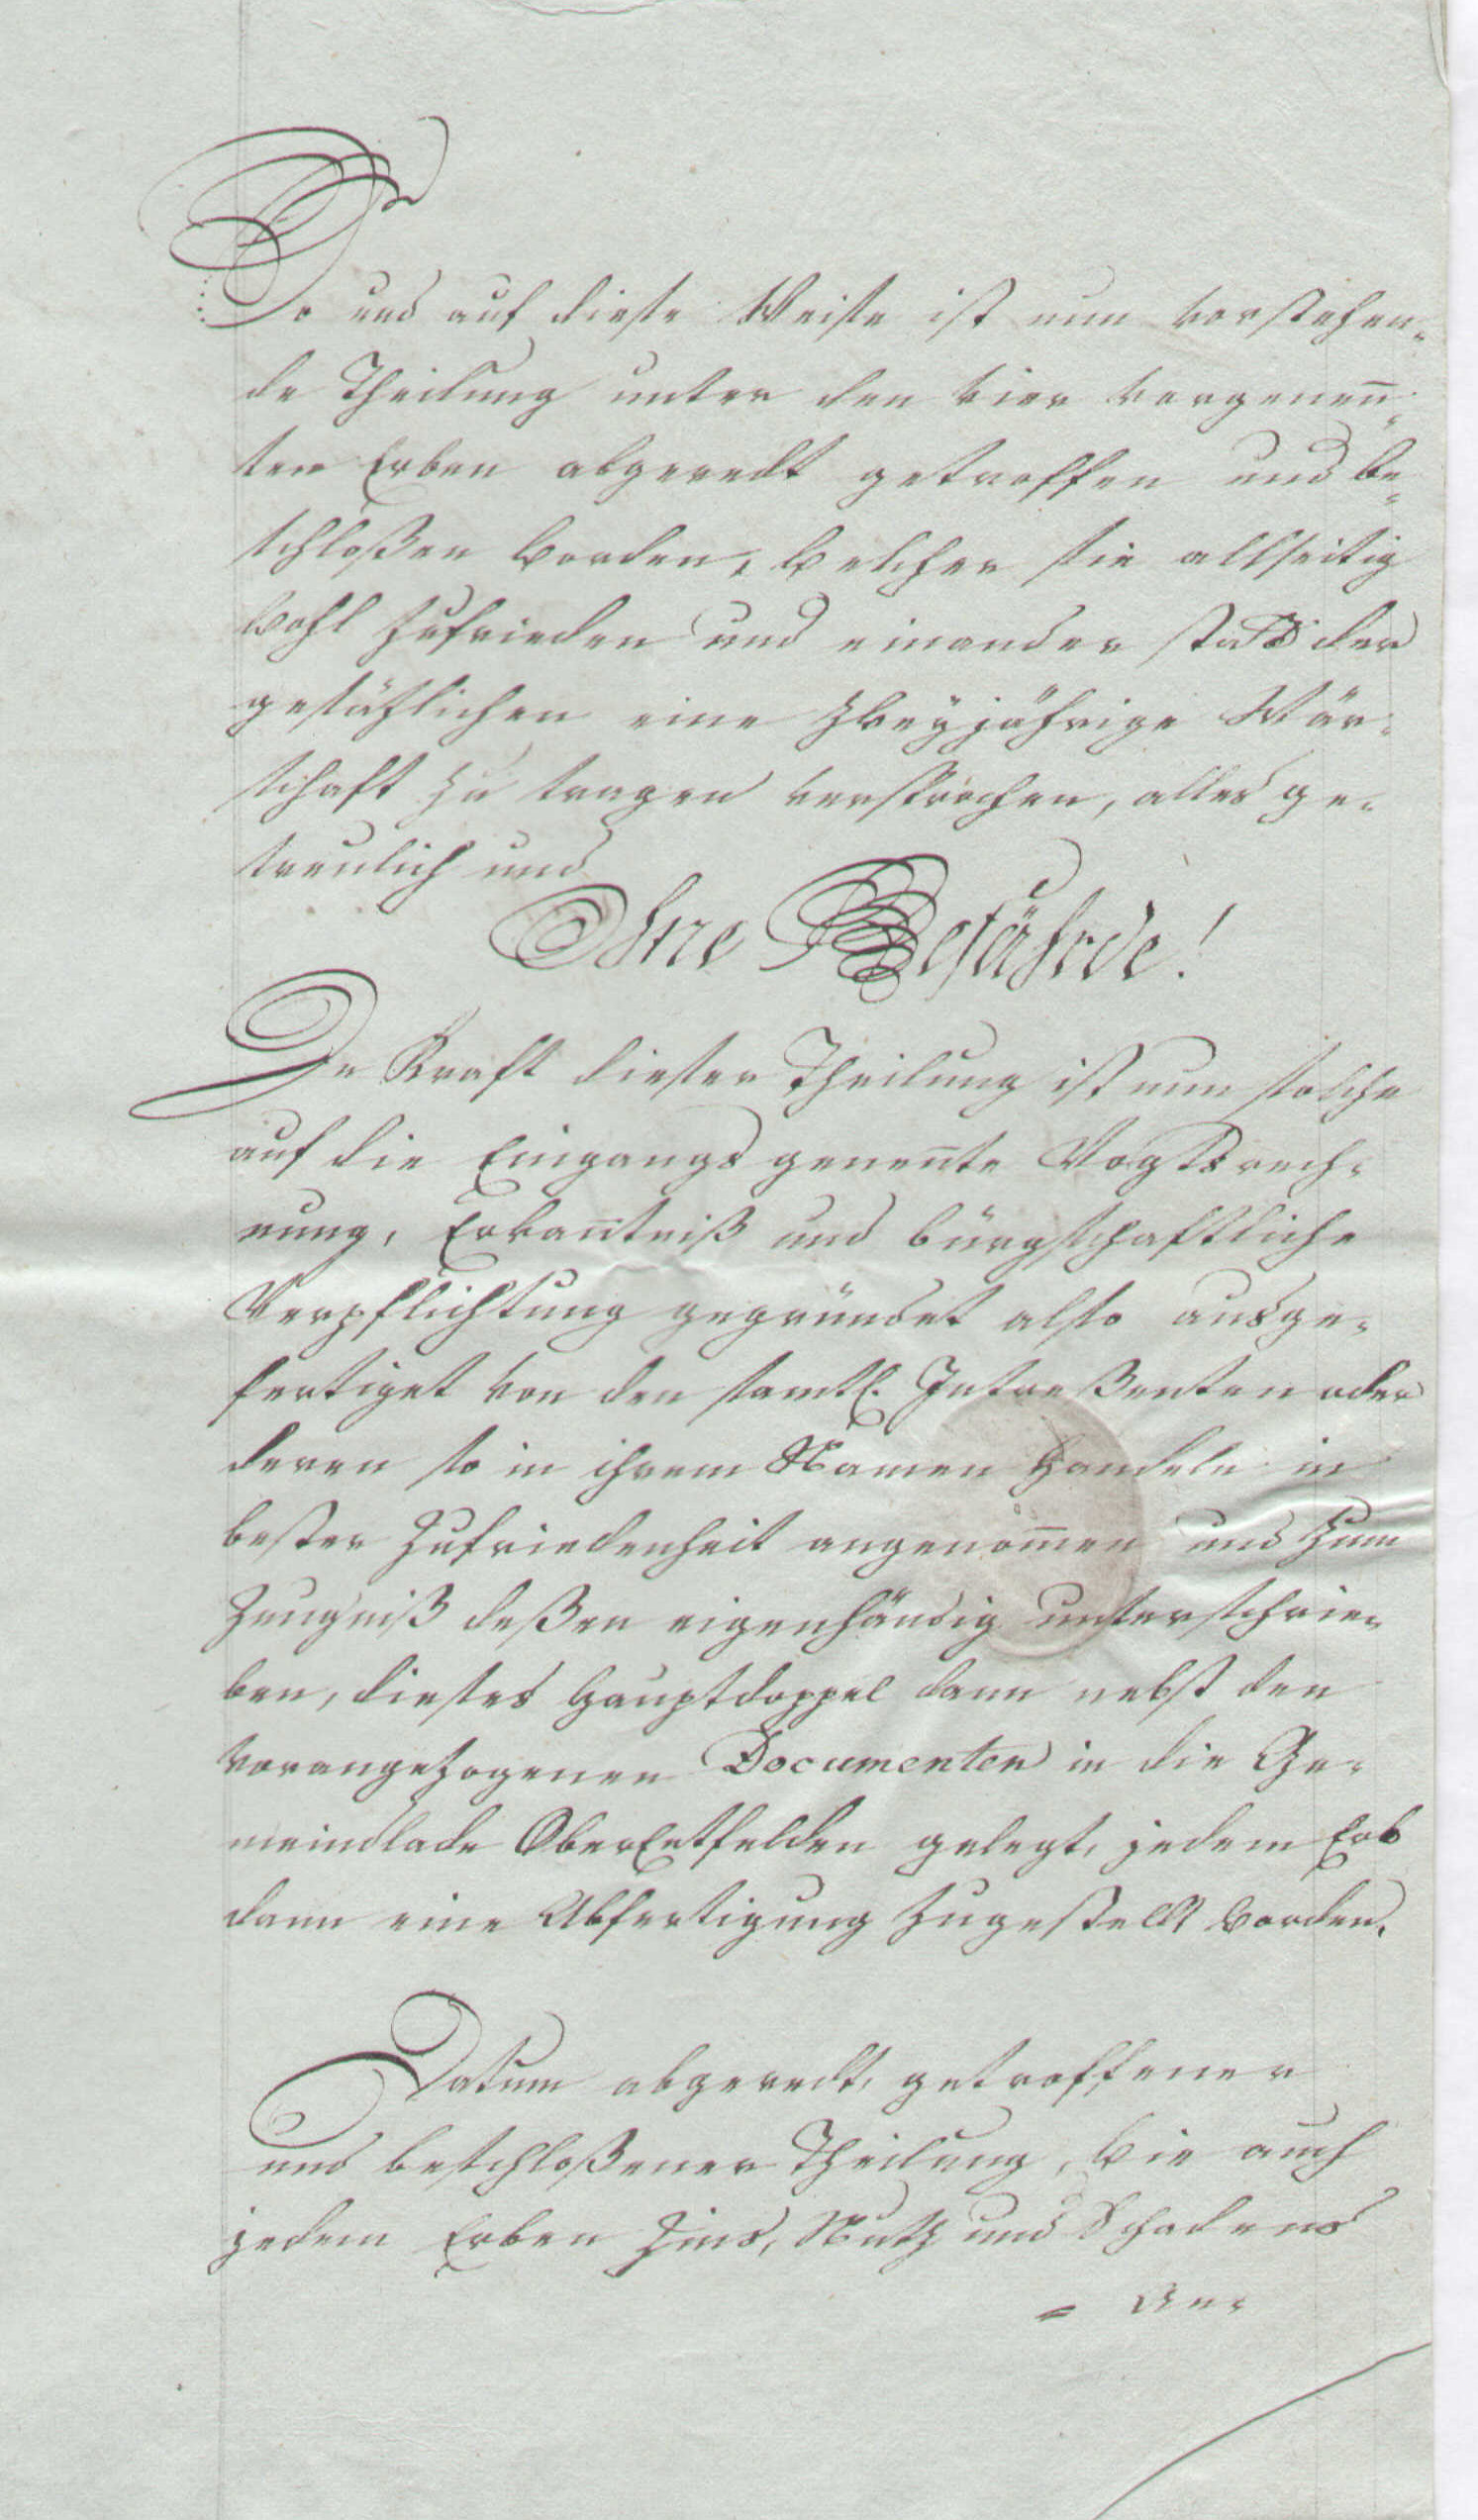 So und auf diese Weise ist nun vorstehen-
de Theilung unter den vier vorgenen̄-
ten Erben abgeredt getroffen und be-
schloßen worden, welcher sie allseitig
wohl zufrieden und einander statt der
gesäzlichen eine zweÿjährige Wär-
schaft zu tragen versprochen, alles ge-
treulich und
Ohne Gefährde!
In Kraft dieser Theilung ist nun solche
auf die Eingangs genen̄te Vogtsrech-
nung, Erkan̄tniß und bürgschaftliche
Verpflichtung gegründet also ausge-
fertiget von den samtl. Intreßenten oder
deren so in ihrem Namen handeln in
bester Zufriedenheit angenom̄en und zum
Zeugniß deßen eigenhändig unterschrie-
ben, dieses Hauptdoppel dann nebst den
vorangezogenen Documenten in die Ge-
meindlade OberEntfelden gelegt, jedem Erb
dann eine Abfertigung zugestellt worden.
Datum abgeredt, getroffener
und beschloßener Theilung, wie auch
jedem Erben Zins, Nutz und Schadens
= An-